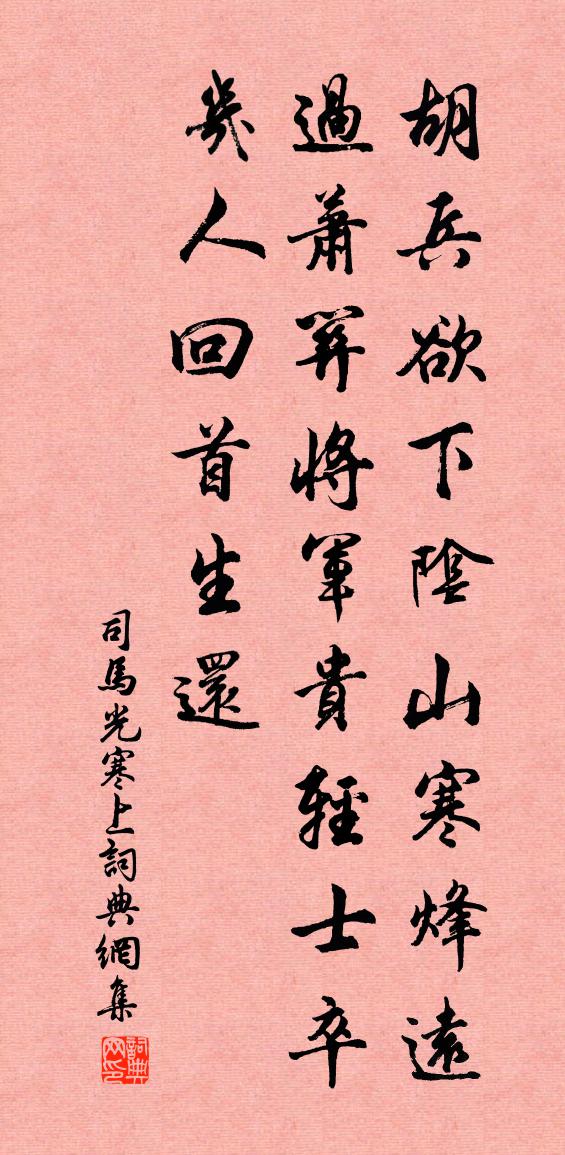 胡兵欲下陰山寒烽遠
過蕭關將軍貴輕士卒
幾人回首生還
司馬光寒上詞典網集
詞典網印